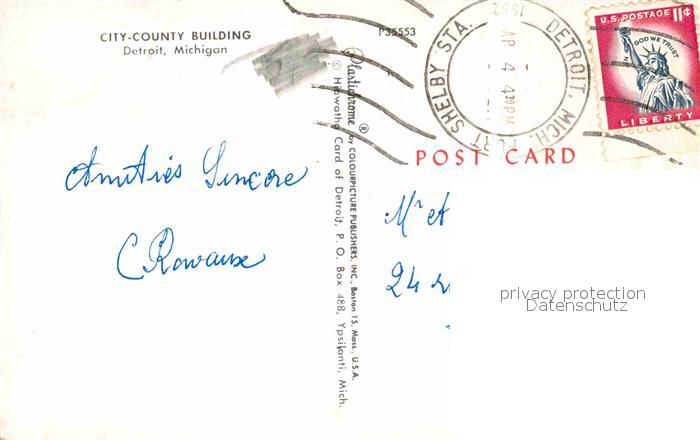 CITY-COUNTY BUILDING
Detroit, Michigan
P35553
Plastichrome ® by COLOURPICTURE PUBLISHERS, INC., Boston 15, Mass., U.S.A.
© Hiawatha Card of Detroit, P. O. Box 488, Ypsilanti, Mich.
FORT SHELBY STA.
DETROIT, MICH.
AP 4 4 30 PM
1962
U.S. POSTAGE 11¢
IN GOD WE TRUST
LIBERTY
POST CARD
Amitiés Sincère
C Rowaux
Mr et
24
privacy protection
Datenschutz